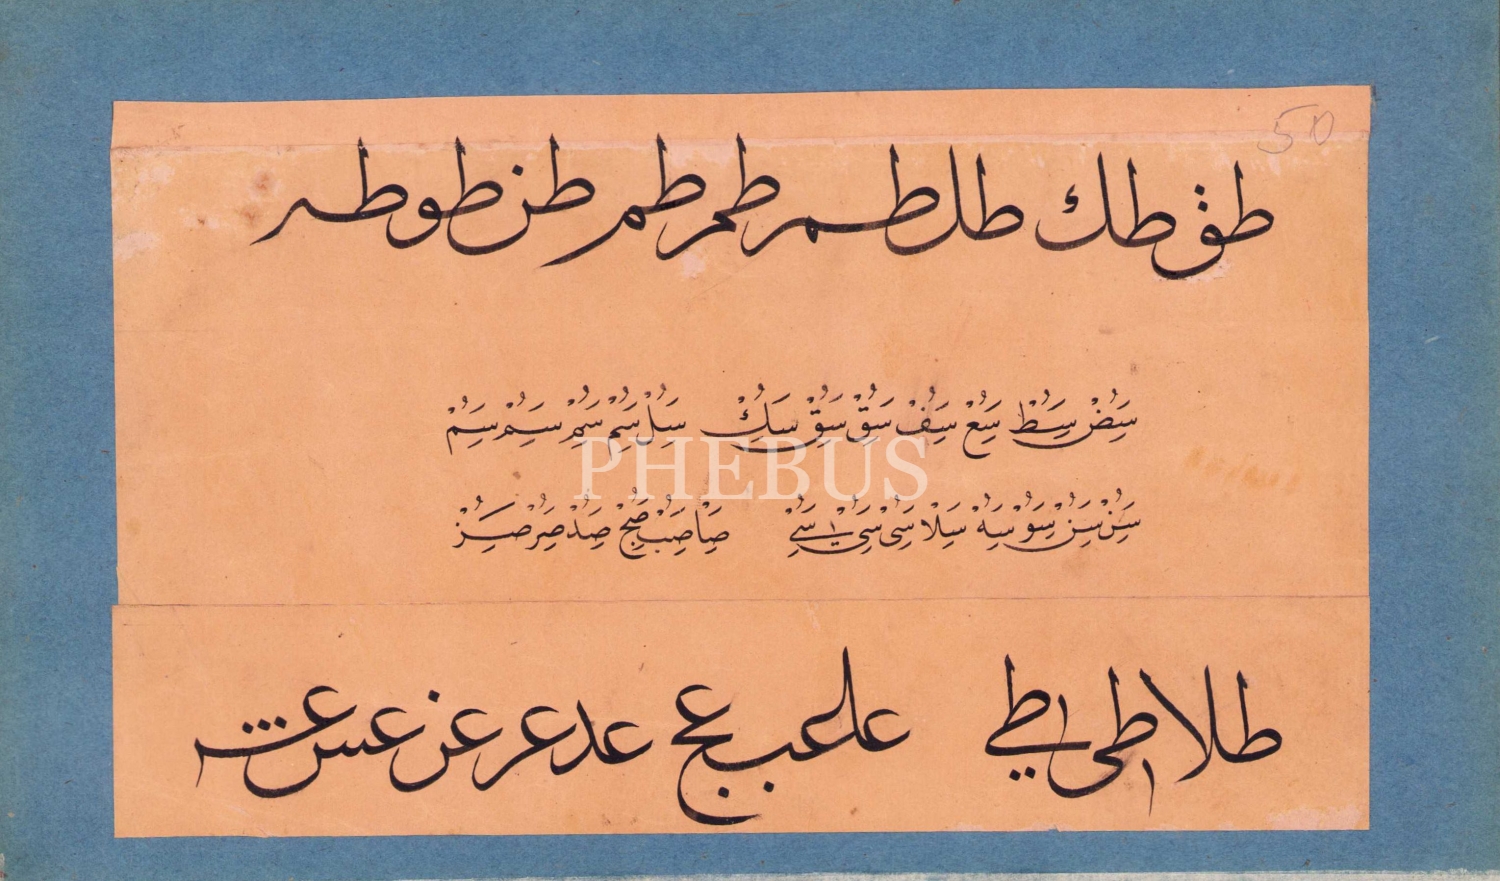 50
طق طك طل طم طم طم طن طو طه
سَِضْ سَِطْ سَِعْ سَِفْ سَِقْ سَِقْ سَِكْ سَِلْ سَِمْ سَِمْ سَِمْ سَِمْ
PHEBUS
سَِنْ سَِنْ سَِوْ سَِهْ سَِلَا سَِىْ سَِىْ سَِےْ صَِا صَِبْ صَِجْ صَِدْ صَِرْ صَِزْ
طلا طى طے عا عب عج عد عر عز عس عش